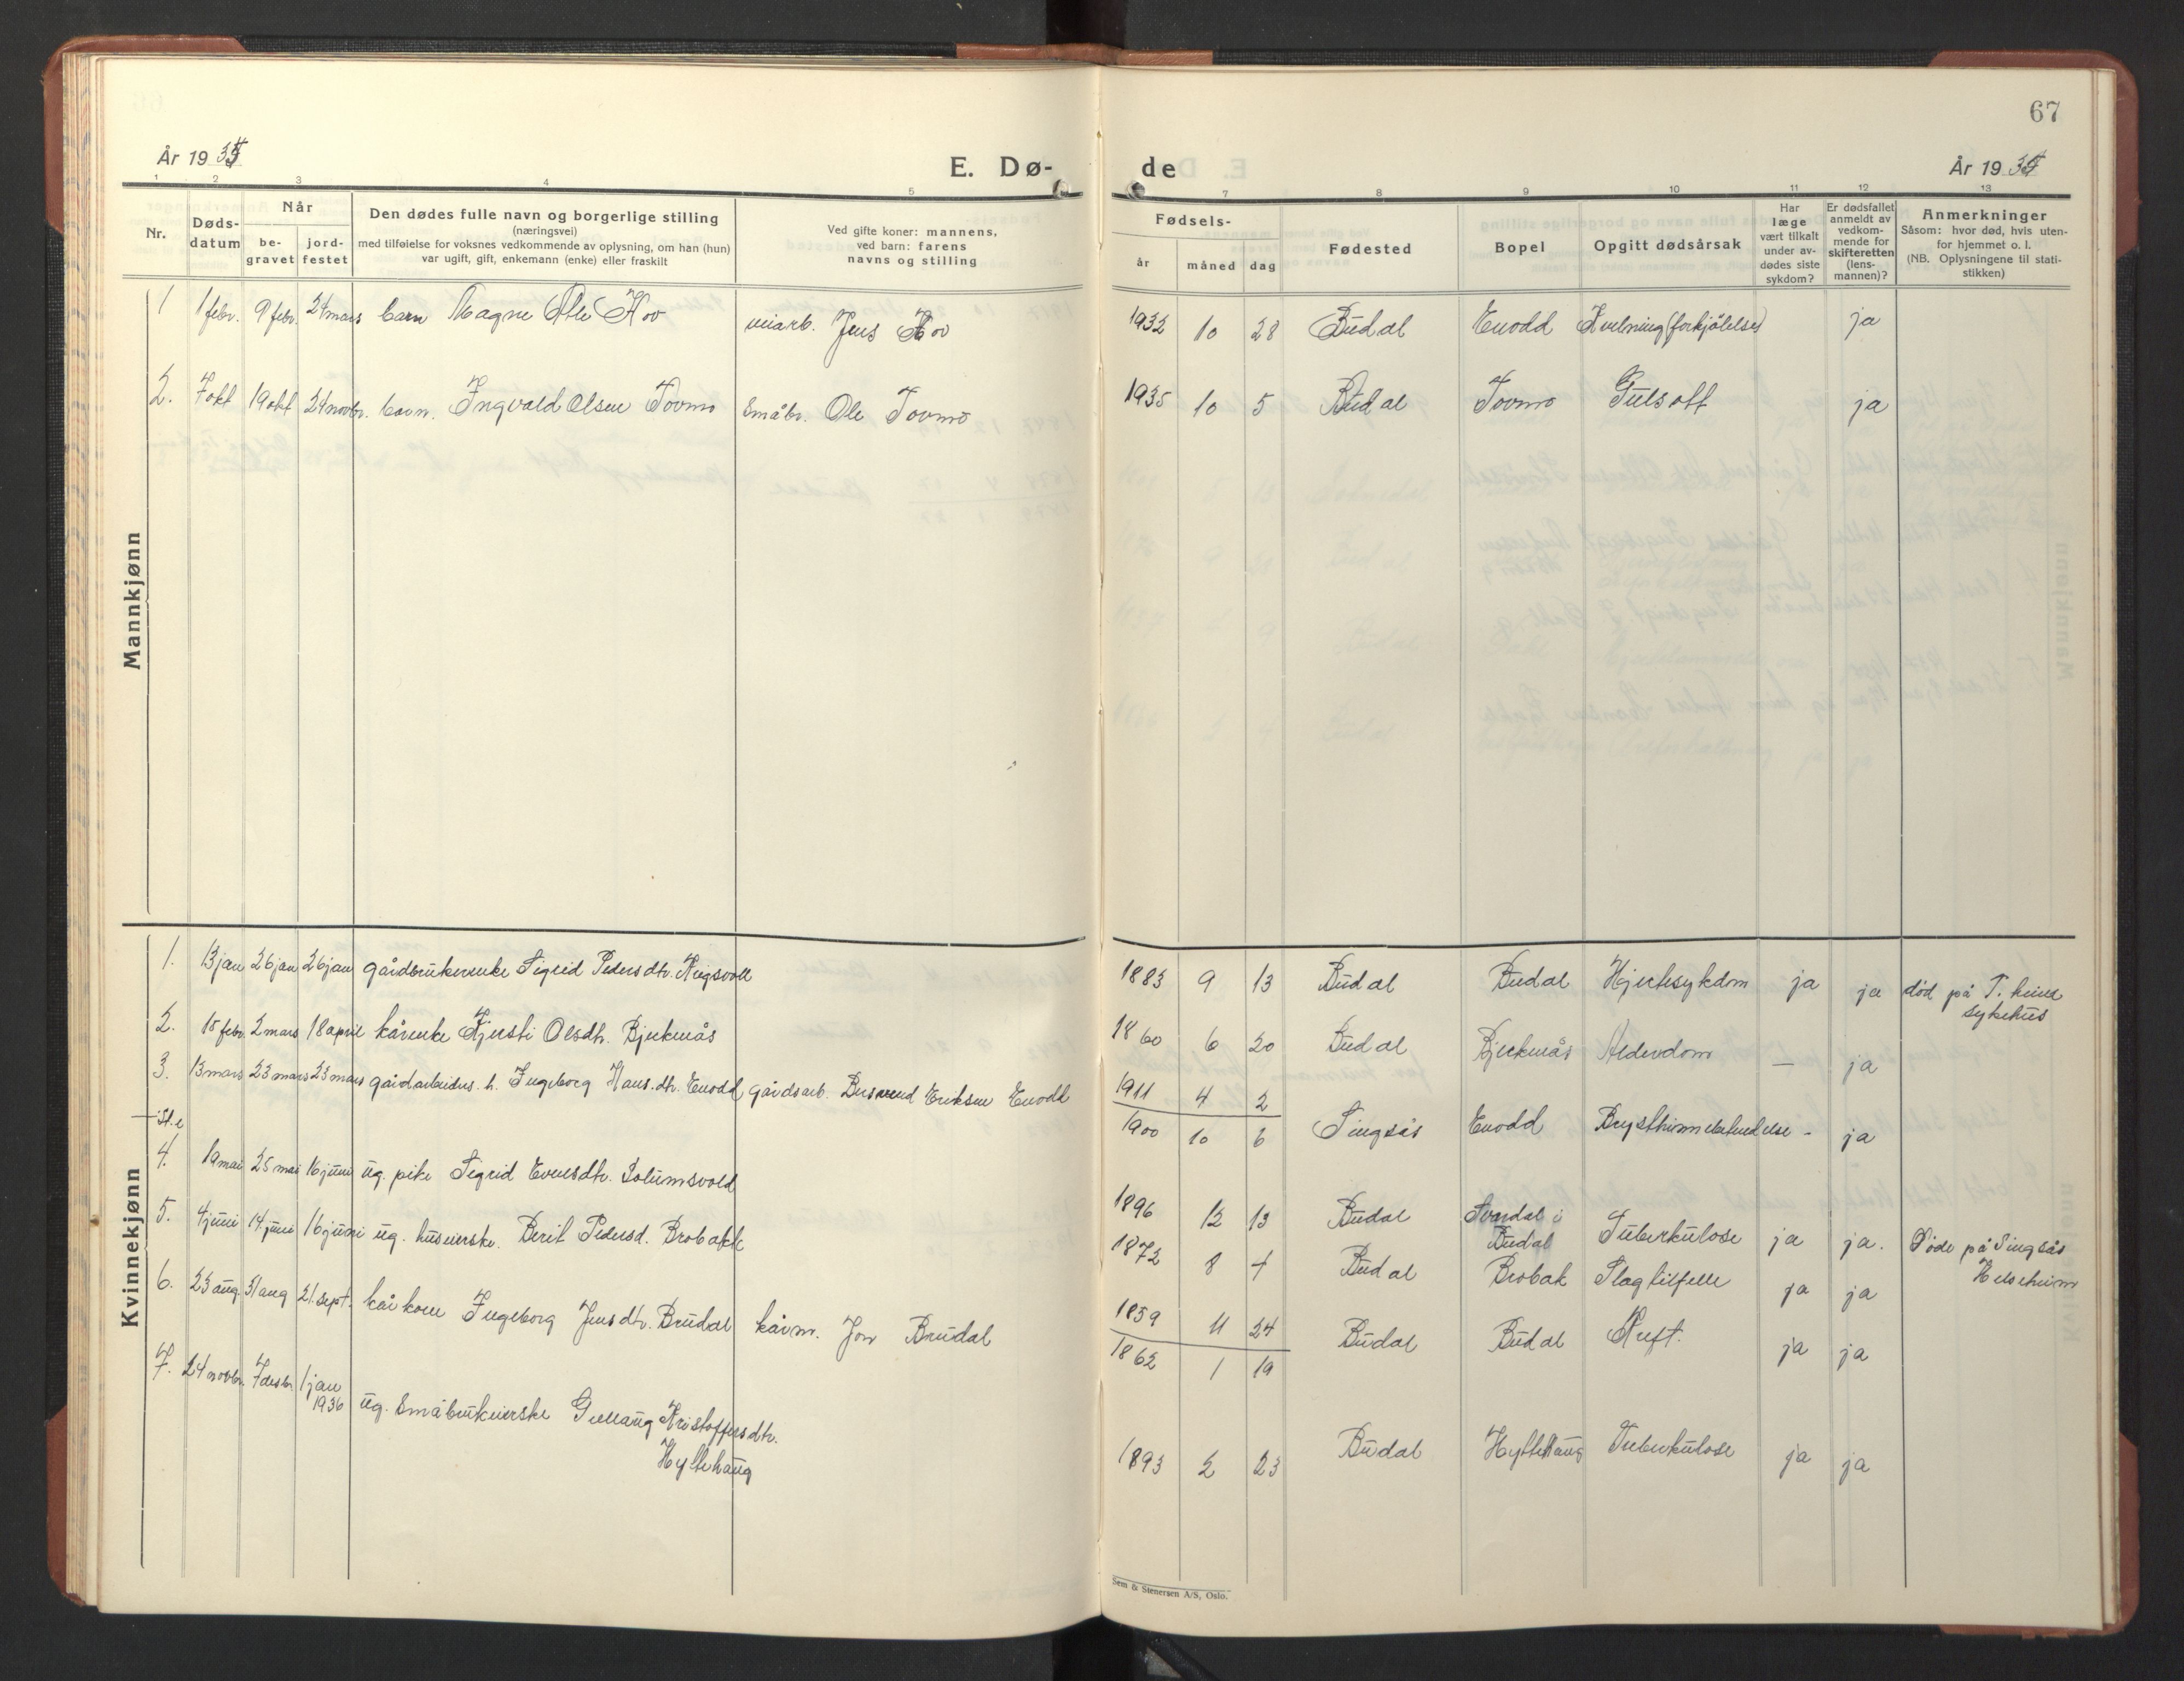 67
År 1935
E. Dø-
de
År 1935
1 2 3 4 5
7 8 9 10 11 12 13
Nr.
Døds-
datum
Når
be-
gravet
jord-
festet
Den dødes fulle navn og borgerlige stilling
(næringsvei)
med tilføielse for voksnes vedkommende av oplysning, om han (hun)
var ugift, gift, enkemann (enke) eller fraskilt
Ved gifte koner: mannens,
ved barn: farens
navns og stilling
Fødsels-
år måned dag
Fødested
Bopel
Opgitt dødsårsak
Har
læge
vært tilkalt
under av-
dødes siste
sykdom?
Er dødsfallet
anmeldt av
vedkom-
mende for
skifteretten
(lens-
mannen)?
Anmerkninger
Såsom: hvor død, hvis uten-
for hjemmet o. l.
(NB. Oplysningene til stati-
stikken)
Mannkjønn
1 1 febr. 9 febr. 24 mars barn Magne Ole Hov veiarb. Jens Hov 1932 10 28 Budal Enodd Kvelning (forkjølelse) ja
2. 7 okt 19 okt 24 novbr. barn. Ingvald Olsen Tovmo Småbr. Ole Tovmo 1935 10 5 Budal Tovmo Gulsott ja
Kvinnekjønn
1. 13 jan 26 jan 26 jan gårdbrukerenke Sigrid Pedersdtr. Rigsvoll 1883 9 13 Budal Budal Hjertesykdom ja ja død på T. heim
sykehus
2. 18 febr. 2 mars 18 april kårenke Kjersti Olsdtr. Bjerkenås 1860 6 20 Budal Bjerkenås Alderdom — ja
3. 13 mars 23 mars 23 mars gårdarbeiders. h. Ingeborg Hans.dtr. Enodd gårdsarb. Bersvend Eriksen Enodd 1911 4 2
1900 10 6 Singsås Enodd Brysthinnebetendelse - ja
4. 19 mai 25 mai 16 juni ug. pike Sigrid Evensdtr. Solumsvold 1896 12 13 Budal Svardal i
Budal Tuberkulose ja ja. Døde på Singsås
Helseheim
5. 4 juni 14 juni 16 juni ug. huseierske. Berit Pedersd. Brobakk 1872 8 4 Budal Brobak Slagtilfelle ja ja
6. 23 aug. 31 aug 21. sept. kårkone Ingeborg Jensdtr. Budal kårm. Jon Budal 1859 11 24
1862 1 19 Budal Budal Kreft. ja ja
7. 24 novbr. 7 desbr 1 jan
1936 ug. Småbrukerske Gullaug Kristoffersdtr.
Hyttehaug 1893 2 23 Budal Hyttehaug Tuberkulose ja ja
Sem & Stenersen A/S, Oslo.